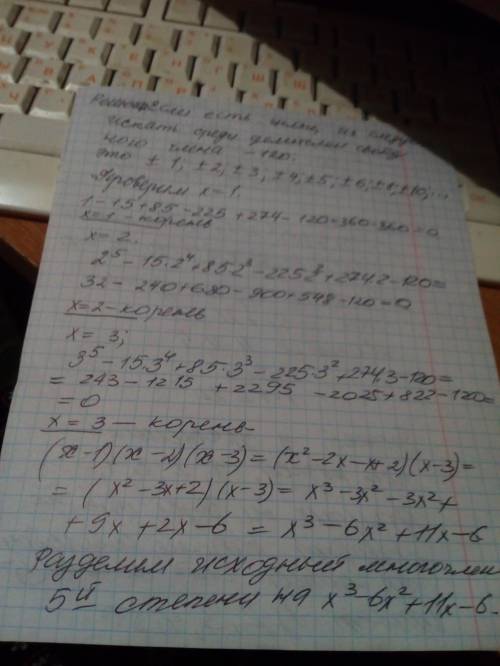 если есть целые, их следует
искать среди делителей свобод
ного члена -120:
это ± 1; ± 2; ± 3; ± 4; ± 5; ± 6; ± 8; ± 10; ...
Проверим x = 1.
1 - 15 + 85 - 225 + 274 - 120 = 360 - 360 = 0
x = 1 - корень
x = 2.
2⁵ - 15·2⁴ + 85·2³ - 225·2² + 274·2 - 120 =
32 - 240 + 680 - 900 + 548 - 120 = 0
x = 2 - корень
x = 3;
3⁵ - 15·3⁴ + 85·3³ - 225·3² + 274·3 - 120 =
= 243 - 1215 + 2295 - 2025 + 822 - 120 =
= 0
x = 3 — корень
(x-1)(x-2)(x-3) = (x²-2x-x+2)(x-3) =
= (x²-3x+2)(x-3) = x³-3x²-3x²+
+9x+2x-6 = x³-6x²+11x-6
Разделим исходный многочлен
5ᴵᴵ степени на x³-6x²+11x-6.